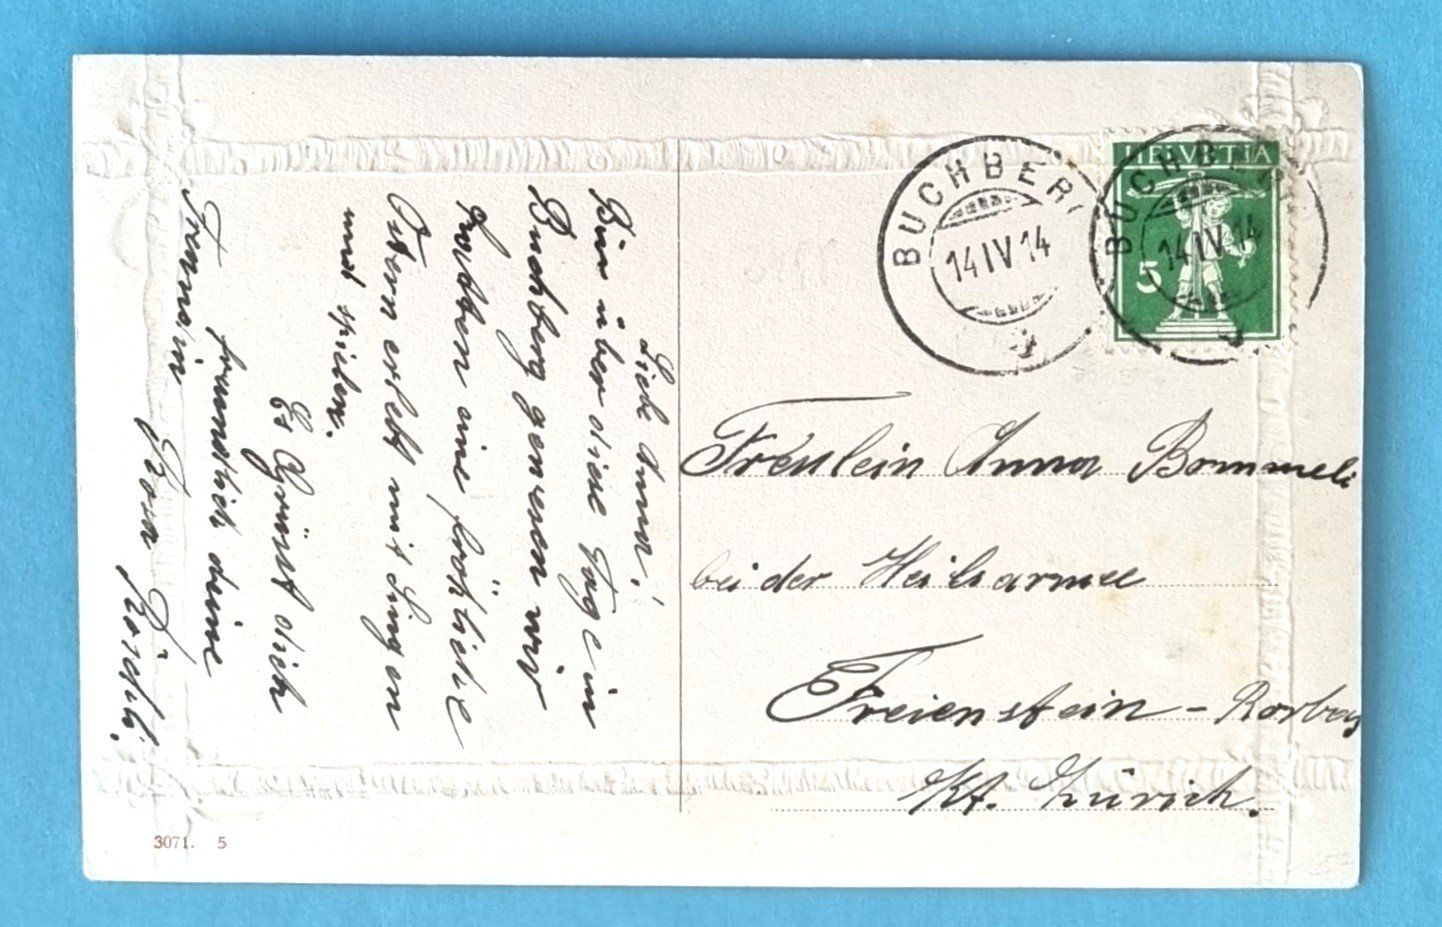 Lieb Anna!
Bin über diese Tage in
Buchberg gewesen wir
hatten eine fröhliche
Ostern erlebt mit Singen
und spielen.
Es Grüsst dich
freundlich deine
Freundin
Rosa Röschli.
BUCHBERG
14 IV 14
HELVETIA
5
BUCHBERG
14 IV 14
Fräulein Anna Bommeli
bei der Heilsarmee
Freienstein - Rorbas
Kt. Zürich.
3071. 5